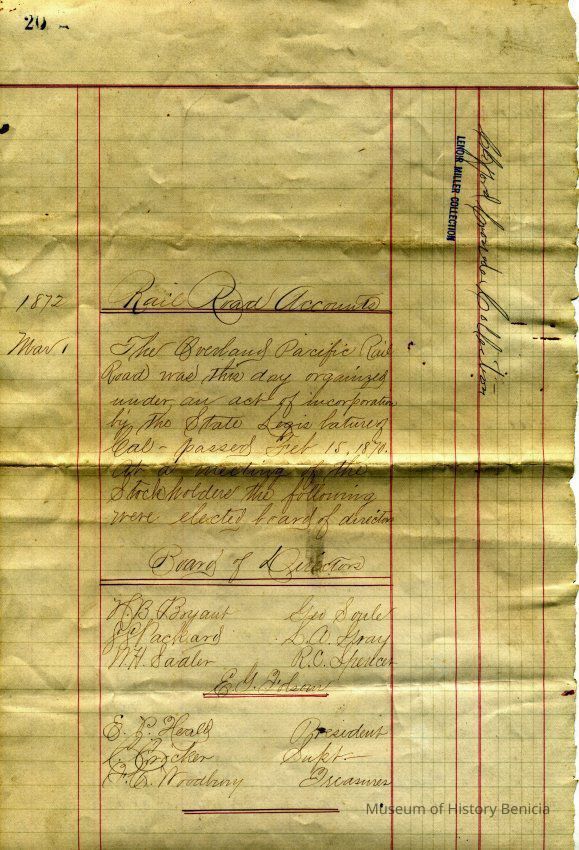 20
LENOIR MILLER COLLECTION
Collection
1872 Rail Road Accounts
Mar 1 The Overland Pacific Rail
Road was this day organized
under an act of incorporation
by the State Legislature of
Cal - passed Feb 15, 1870.
At a meeting of the
Stockholders the following
were elected board of directors
Board of Directors
H.B. Bryant Geo Soule
Packard L.A. Gray
W.H. Sadler R.C. Spencer
E.G. Folsom
E.P. Heald President
C. Crocker Supt-
F.C. Woodbury Treasurer
Museum of History Benicia